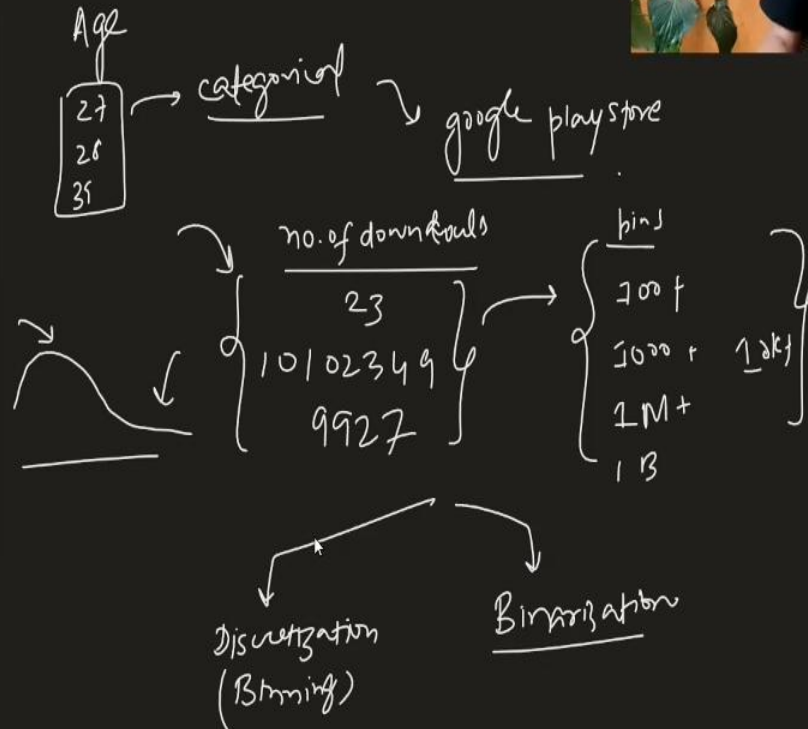 Age
27
28
35
categorical
google playstore
no. of downloads
23
10102349
9927
bins
100+
1000+
1M+
1B
Discretization
(Binning)
Binarization